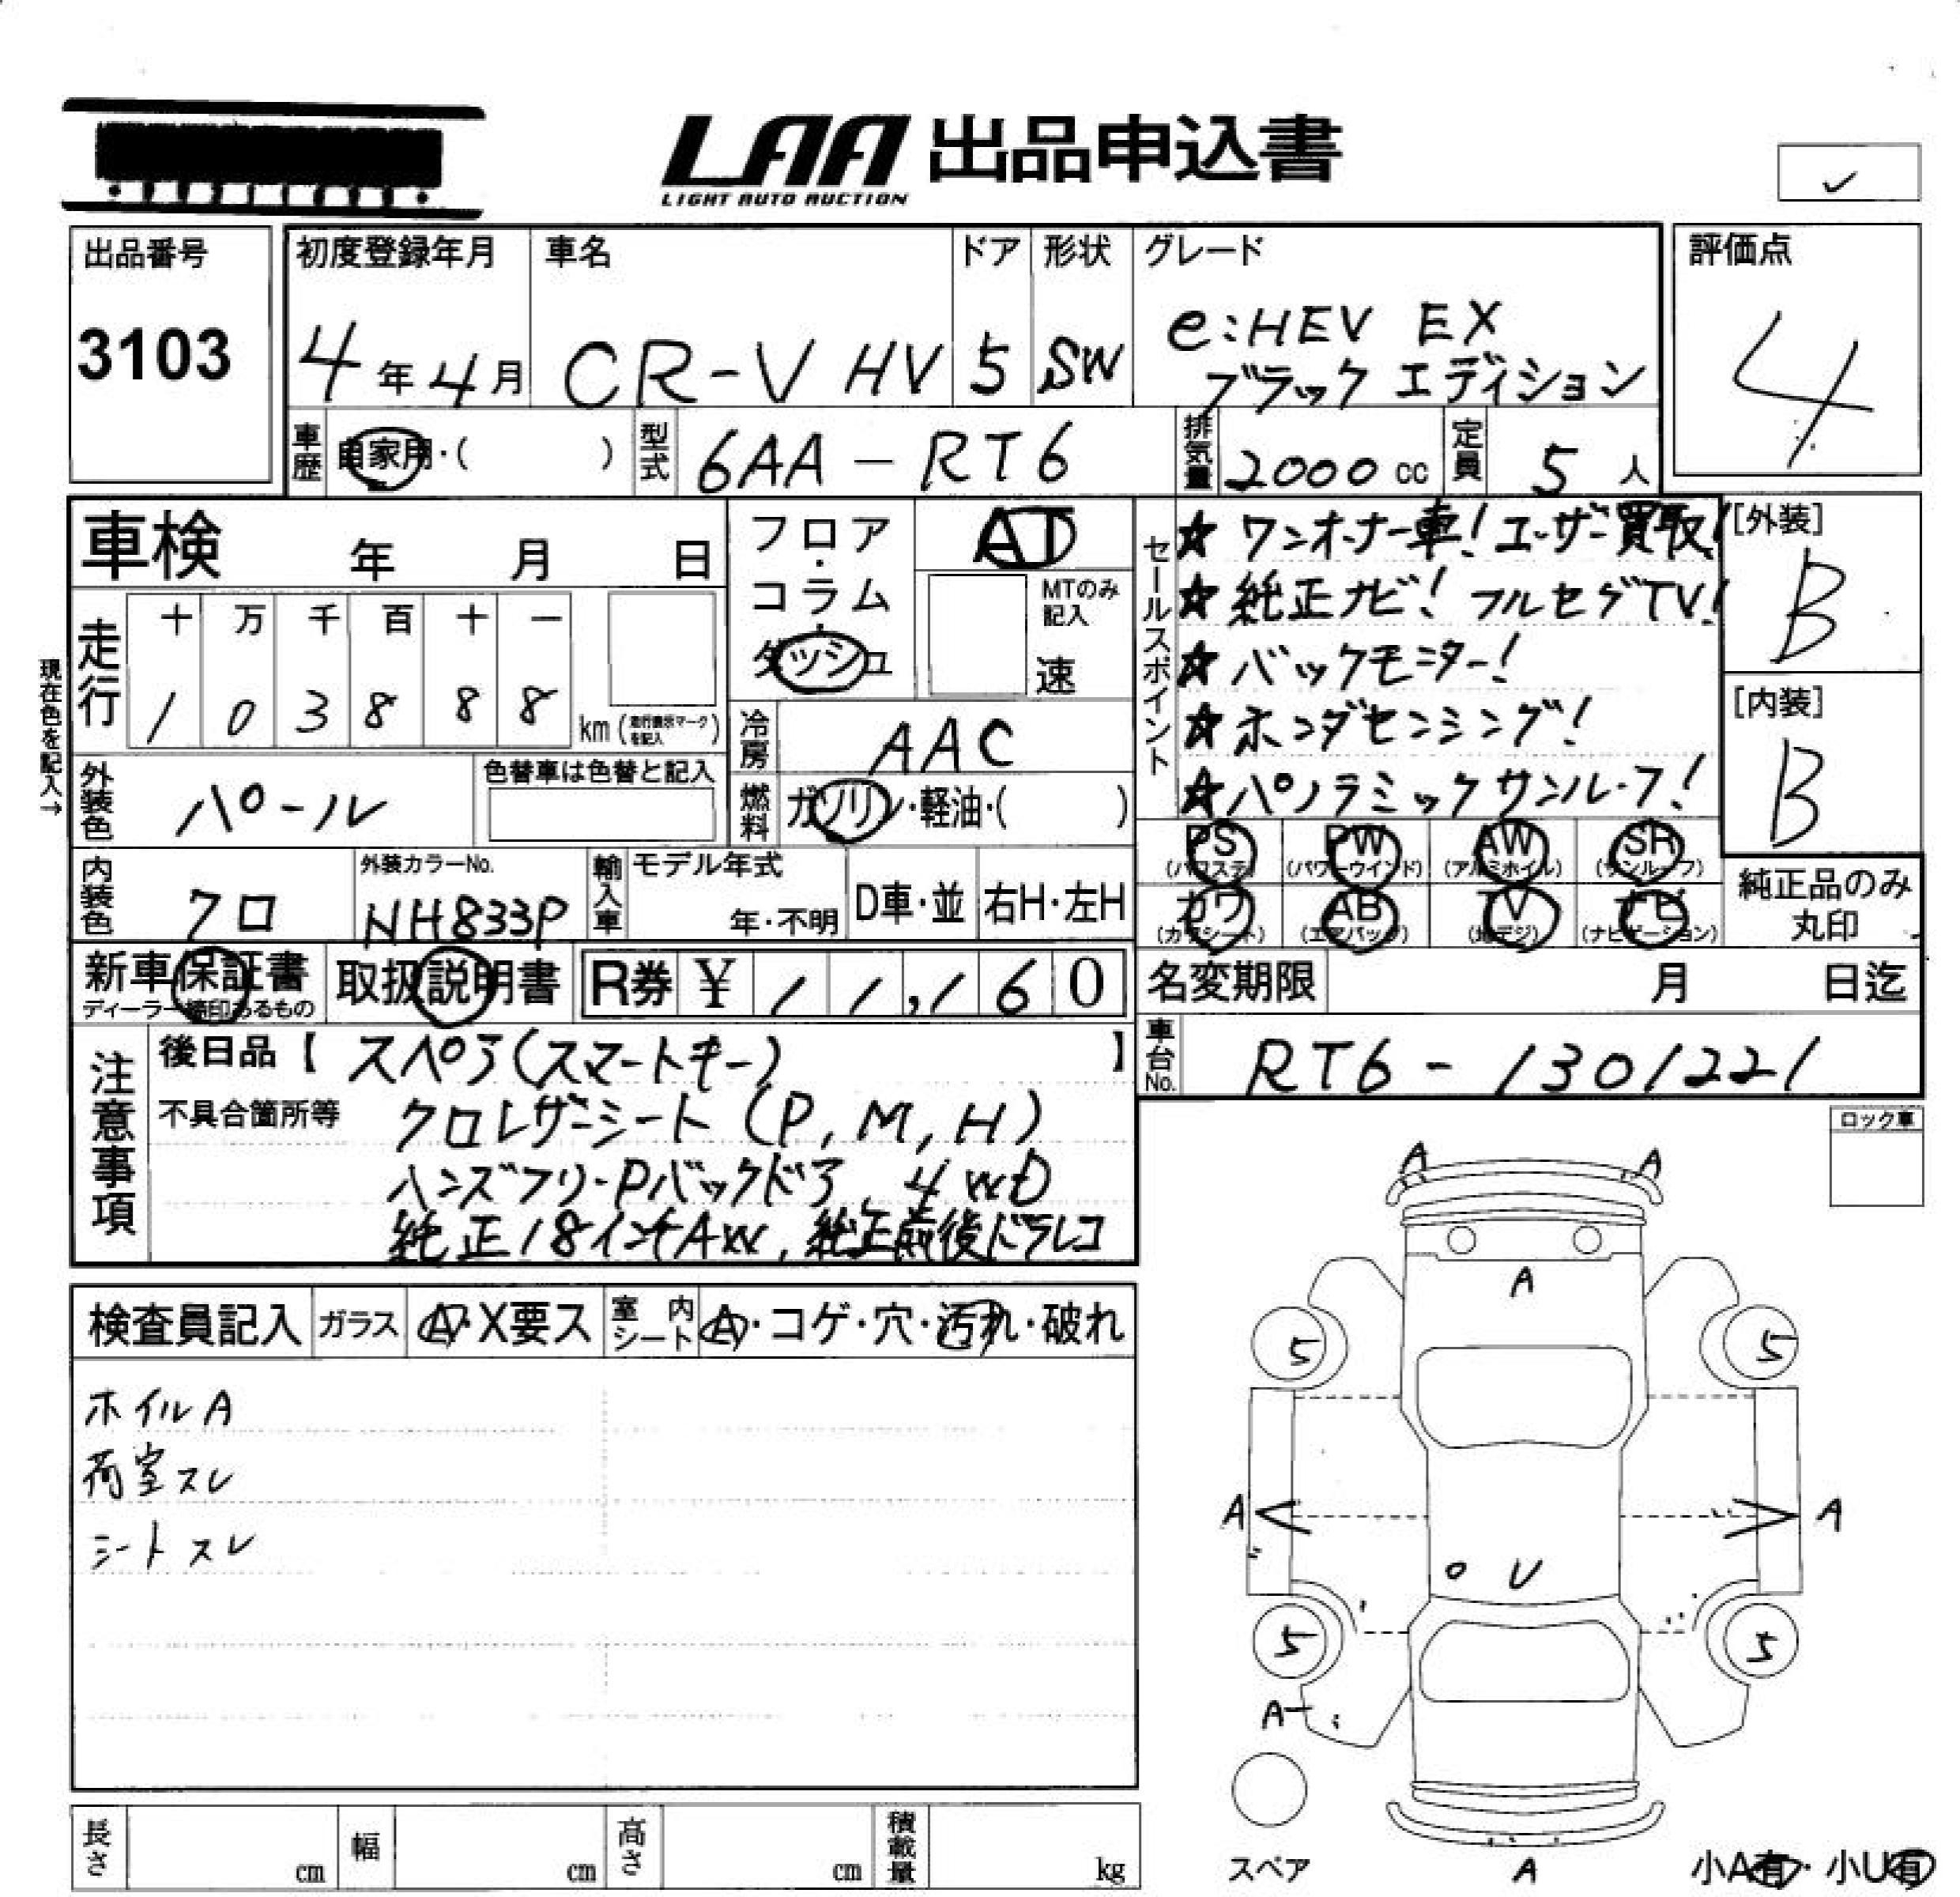 LAA 出品申込書
LIGHT AUTO AUCTION
✓
出品番号
3103
初度登録年月
4年4月
車名
CR-V HV
ドア
5
形状
SW
グレード
e:HEV EX
ブラックエディション
評価点
4
車歴 自家用・( )
型式 6AA-RT6
排気量 2000cc
定員 5人
車検 年 月 日
フロア・コラム・ダッシュ
AT
MTのみ記入
速
現在色を記入→
走行
十 万 千 百 十 一
1 0 3 8 8 8 km (走行表示マークを記入)
冷房 AAC
外装色 パール
色替車は色替と記入
燃料 ガソリン・軽油・( )
内装色 クロ
外装カラーNo.
NH833P
輸入車
モデル年式
年・不明
D車・並
右H・左H
セールスポイント
☆ ワンオーナー車!ユーザー買取!
☆ 純正ナビ! フルセグTV!
☆ バックモニター!
☆ ホンダセンシング!
☆ パノラミックサンルーフ!
[外装]
B
[内装]
B
PS (パワステ)
PW (パワーウインド)
AW (アルミホイル)
SR (サンルーフ)
カワ (カワシート)
AB (エアバック)
TV (地デジ)
ナビ (ナビゲーション)
純正品のみ
丸印
新車保証書
ディーラー締印あるもの
取扱説明書
R券 ¥ 11,160
名変期限 月 日迄
車台No. RT6-1301221
注意事項
後日品【 スペア(スマートキー) 】
不具合箇所等 クロレザーシート (P, M, H)
ハンズフリーPバックドア, 4WD
純正18インチAW, 純正前後ドラレコ
ロック車
検査員記入
ガラス A・X要ス
室内シート A・コゲ・穴・汚れ・破れ
ホイルA
荷室スレ
シートスレ
A A
A
5 5
A A
○ U
5 5
A
スペア
A
小A有・小U有
長さ cm
幅 cm
高さ cm
積載量 kg